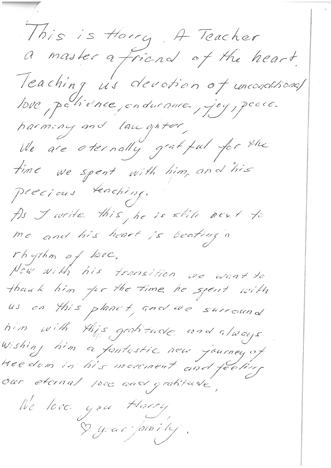 This is Harry. A Teacher
a master a friend of the heart.
Teaching us devotion of unconditional
love, patience, endurance, joy, peace.
harminy and laughter,
We are eternally grateful for the
time we spent with him, and his
precious teaching.
As I write this, he is still next to
me and his heart is beating a
rhythm of love.
Now with his transition we want to
thank him for the time he spent with
us on this planet, and we surround
him with this gratitude and always
wishing him a fantastic new journey of
freedom in his movement and feeling
our eternal love and gratitude.
We love you Harry
♡ your family.